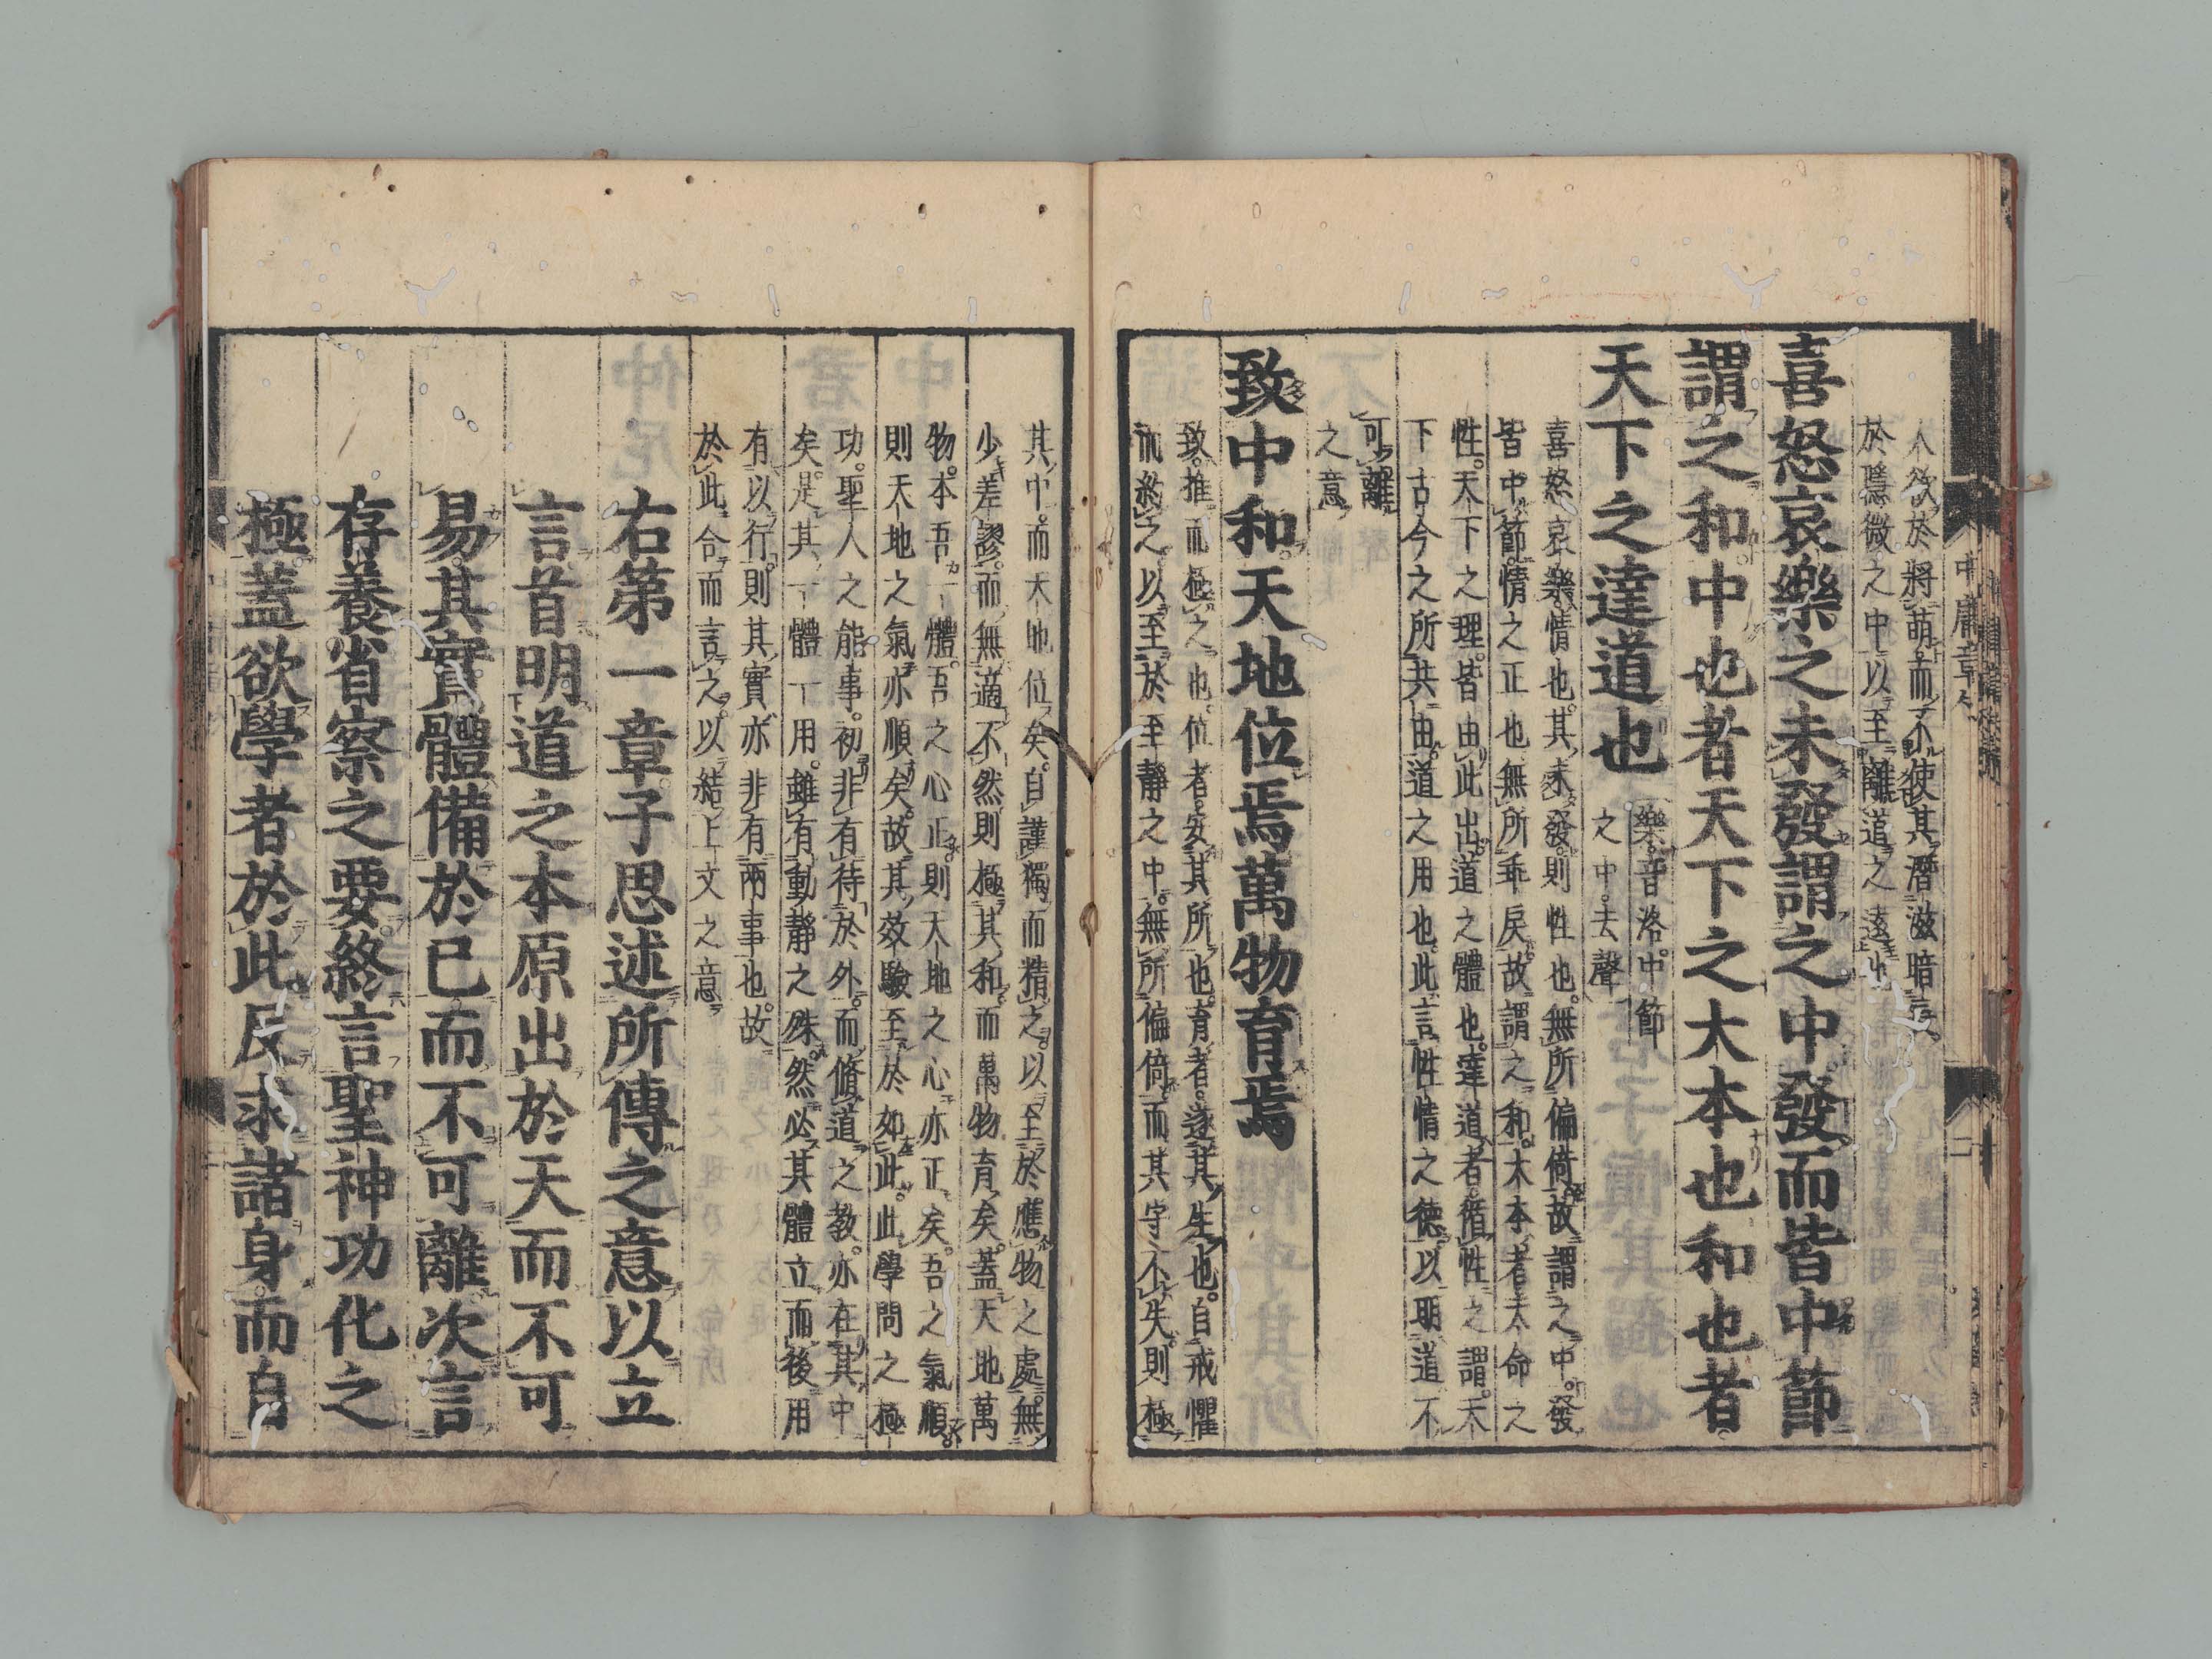 人欲於將萌而不使其潛滋暗長
於隱微之中以至離道之遠也
喜怒哀樂之未發謂之中發而皆中節
謂之和中也者天下之大本也和也者
天下之達道也
樂音洛中節
之中去聲
喜怒哀樂情也其未發則性也無所偏倚故謂之中發
皆中節情之正也無所乖戾故謂之和大本者天命之
性天下之理皆由此出道之體也達道者循性之謂天
下古今之所共由道之用也此言性情之德以明道不
可離
之意
致中和天地位焉萬物育焉
致推而極之也位者安其所也育者遂其生也自戒懼
而約之以至於至靜之中無所偏倚而其守不失則極
其中而天地位矣自謹獨而精之以至於應物之處無
少差謬而無適不然則極其和而萬物育矣蓋天地萬
物本吾一體吾之心正則天地之心亦正矣吾之氣順
則天地之氣亦順矣故其效驗至於如此此學問之極
功聖人之能事初非有待於外而脩道之教亦在其中
矣是其一體一用雖有動靜之殊然必其體立而後用
有以行則其實亦非有兩事也故
於此合而言之以結上文之意
右第一章子思述所傳之意以立
言首明道之本原出於天而不可
易其實體備於已而不可離次言
存養省察之要終言聖神功化之
極蓋欲學者於此反求諸身而自